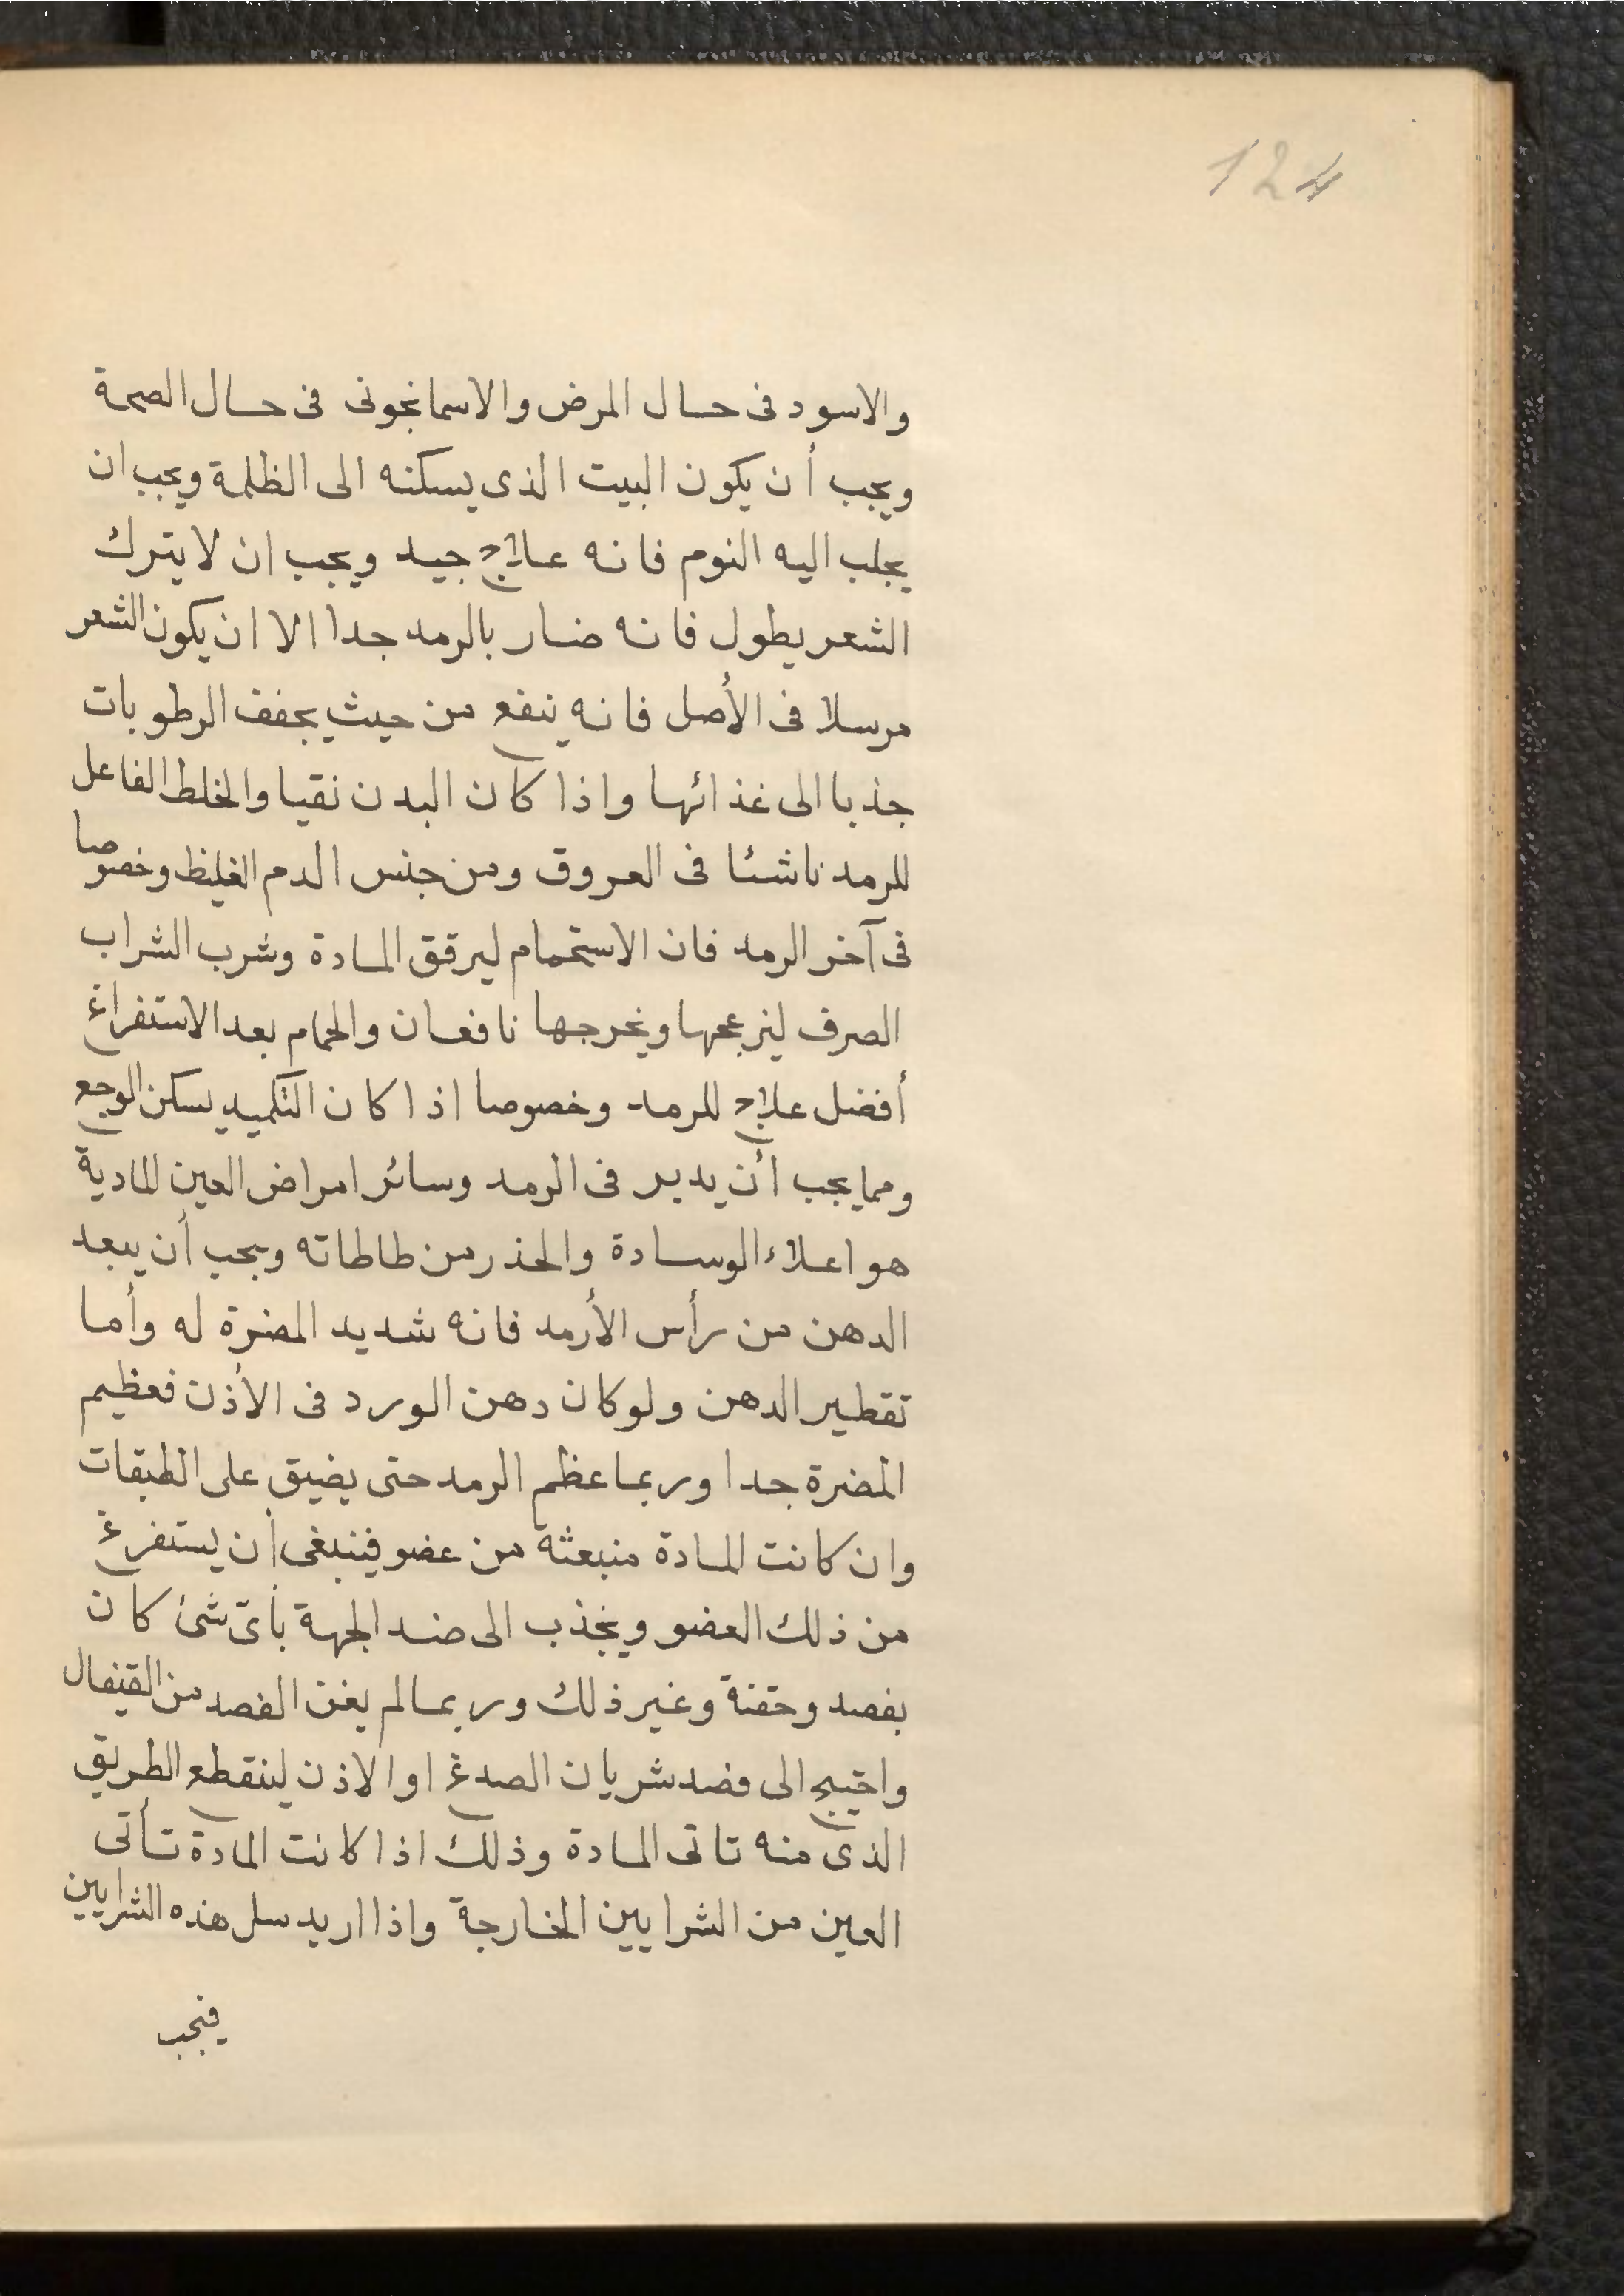 124
والاسود فى حال المرض والاسمانجونى فى حال الصحة
ويجب أن يكون البيت الذى يسكنه الى الظلمة ويجب ان
يجلب اليه النوم فانه علاج جيد ويجب ان لا يترك
الشعر يطول فانه ضار بالرمد جدا الا ان يكون الشعر
مرسلا فى الأصل فانه ينفع من حيث يجفف الرطوبات
جذبا الى غذائها واذا كان البدن نقيا والخلط الفاعل
للرمد ناشئا فى العروق ومن جنس الدم الغليظ وخصوصا
فى آخر الرمد فان الاستحمام ليرقق المادة وشرب الشراب
الصرف ليزعجها ويخرجها نافعان والحمام بعد الاستفراغ
أفضل علاج للرمد وخصوصا اذا كان التكميد يسكن الوجع
ومما يجب أن يدبر فى الرمد وسائر امراض العين المادية
هو اعلاء الوسادة والحذر من طاطاته ويجب أن يبعد
الدهن من رأس الأرمد فانه شديد المضرة له وأما
تقطير الدهن ولو كان دهن الورد فى الأذن فعظيم
المضرة جدا وربما عظم الرمد حتى يضيق على الطبقات
وان كانت المادة منبعثة من عضو فينبغى أن يستفرغ
من ذلك العضو ويجذب الى ضد الجهة بأى شئ كان
بفصد وحقنة وغير ذلك وربما لم يغن الفصد من القيفال
واحتيج الى فصد شريان الصدغ او الاذن لينقطع الطريق
الذى منه تاتى المادة وذلك اذا كانت المادة تأتى
العين من الشرايين الخارجة واذا اريد سل هذه الشرايين
فيجب